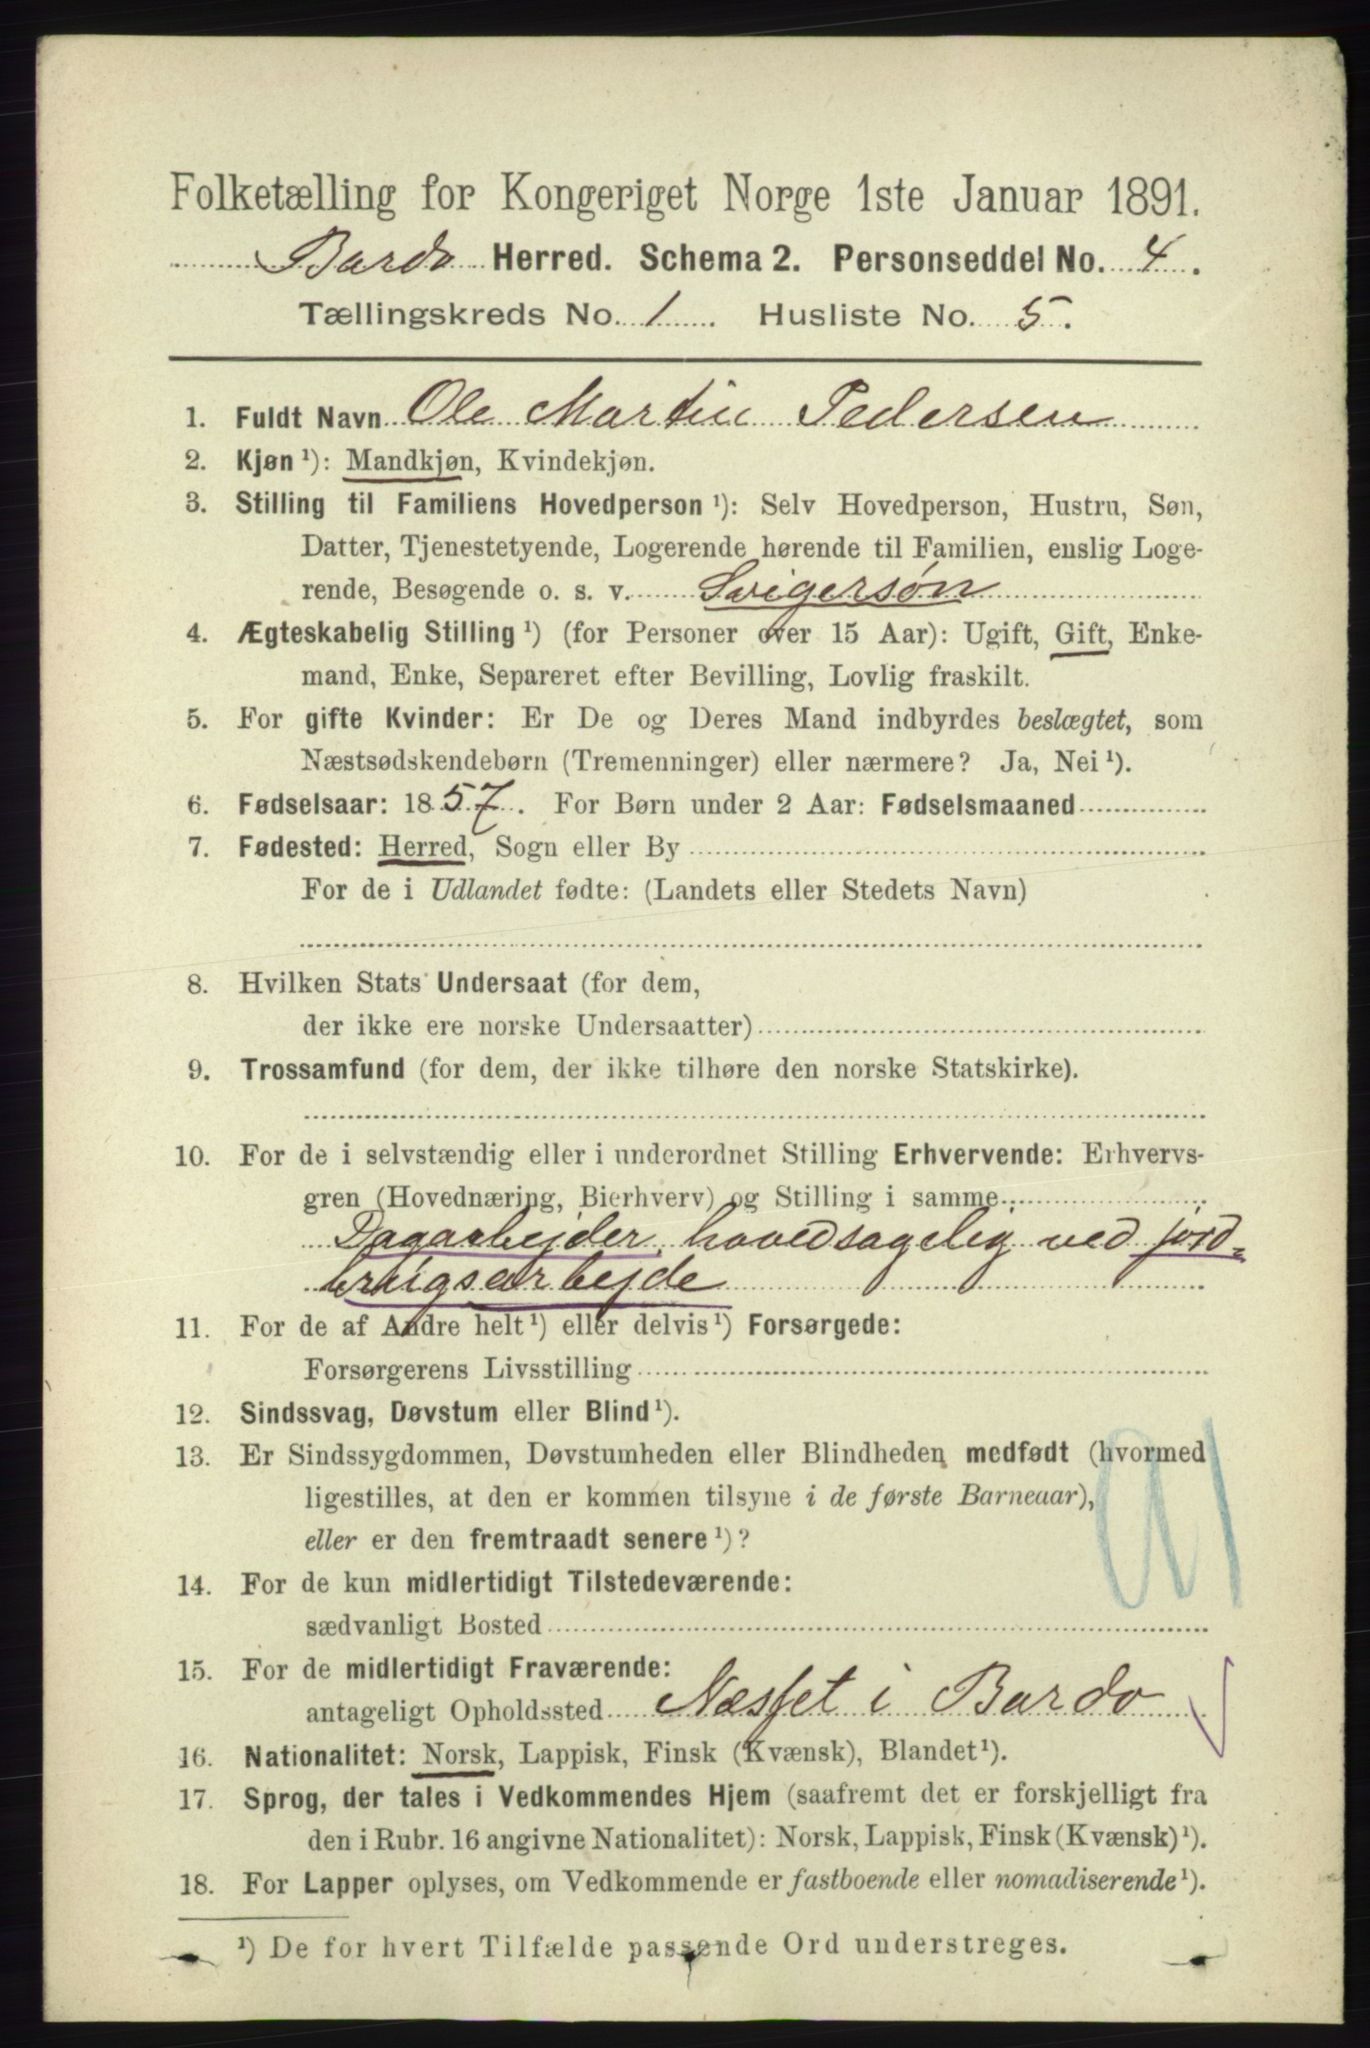 Folketælling for Kongeriget Norge 1ste Januar 1891.
Bardo Herred. Schema 2. Personseddel No. 4.
Tællingskreds No. 1. Husliste No. 5.
1. Fuldt Navn Ole Martin Pedersen
2. Kjøn ¹): Mandkjøn, Kvindekjøn.
3. Stilling til Familiens Hovedperson ¹): Selv Hovedperson, Hustru, Søn,
Datter, Tjenestetyende, Logerende hørende til Familien, enslig Loge-
rende, Besøgende o. s. v. Svigersøn
4. Ægteskabelig Stilling ¹) (for Personer over 15 Aar): Ugift, Gift, Enke-
mand, Enke, Separeret efter Bevilling, Lovlig fraskilt.
5. For gifte Kvinder: Er De og Deres Mand indbyrdes beslægtet, som
Næstsødskendebørn (Tremenninger) eller nærmere? Ja, Nei ¹).
6. Fødselsaar: 1857. For Børn under 2 Aar: Fødselsmaaned
7. Fødested: Herred, Sogn eller By
For de i Udlandet fødte: (Landets eller Stedets Navn)
8. Hvilken Stats Undersaat (for dem,
der ikke ere norske Undersaatter)
9. Trossamfund (for dem, der ikke tilhøre den norske Statskirke).
10. For de i selvstændig eller i underordnet Stilling Erhvervende: Erhvervs-
gren (Hovednæring, Bierhverv) og Stilling i samme
Dagarbejder, hovedsagelig ved jord-
brugsarbejde
11. For de af Andre helt ¹) eller delvis ¹) Forsørgede:
Forsørgerens Livsstilling
12. Sindssvag, Døvstum eller Blind ¹).
13. Er Sindssygdommen, Døvstumheden eller Blindheden medfødt (hvormed
ligestilles, at den er kommen tilsyne i de første Barneaar),
eller er den fremtraadt senere ¹)?
14. For de kun midlertidigt Tilstedeværende:
sædvanligt Bosted
15. For de midlertidigt Fraværende:
antageligt Opholdssted Næsset i Bardo
16. Nationalitet: Norsk, Lappisk, Finsk (Kvænsk), Blandet ¹).
17. Sprog, der tales i Vedkommendes Hjem (saafremt det er forskjelligt fra
den i Rubr. 16 angivne Nationalitet): Norsk, Lappisk, Finsk (Kvænsk) ¹).
18. For Lapper oplyses, om Vedkommende er fastboende eller nomadiserende ¹).
¹) De for hvert Tilfælde passende Ord understreges.